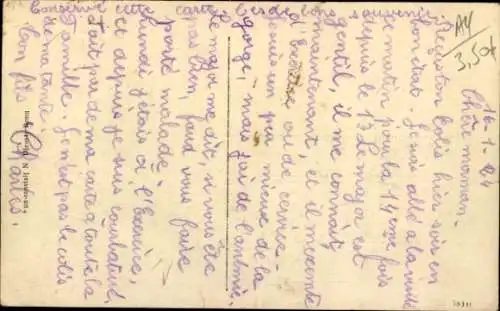 16-1-24
Chère maman.
Reçu ton colis hier soir en
bon état. Je suis allé à la visite
ce matin pour la 14ème fois
depuis le 13. Le major est
gentil, il me connaît
maintenant, et il m'exempte
d'exercice ou de service.
Je suis un peu mieux de la
gorge, mais j'ai de l'asthme.
Le major me dit, si vous êtes
pas bien, faut vous faire
porté malade.
Lundi j'étais à l'exercice,
et depuis je suis courbaturé,
Fait part de ma carte à toute la
famille. Je n'ai pas le colis
de ma tante.
Ton fils Charles.
Conserve cette carte c'est de l'
souvenir
A4
3,50x